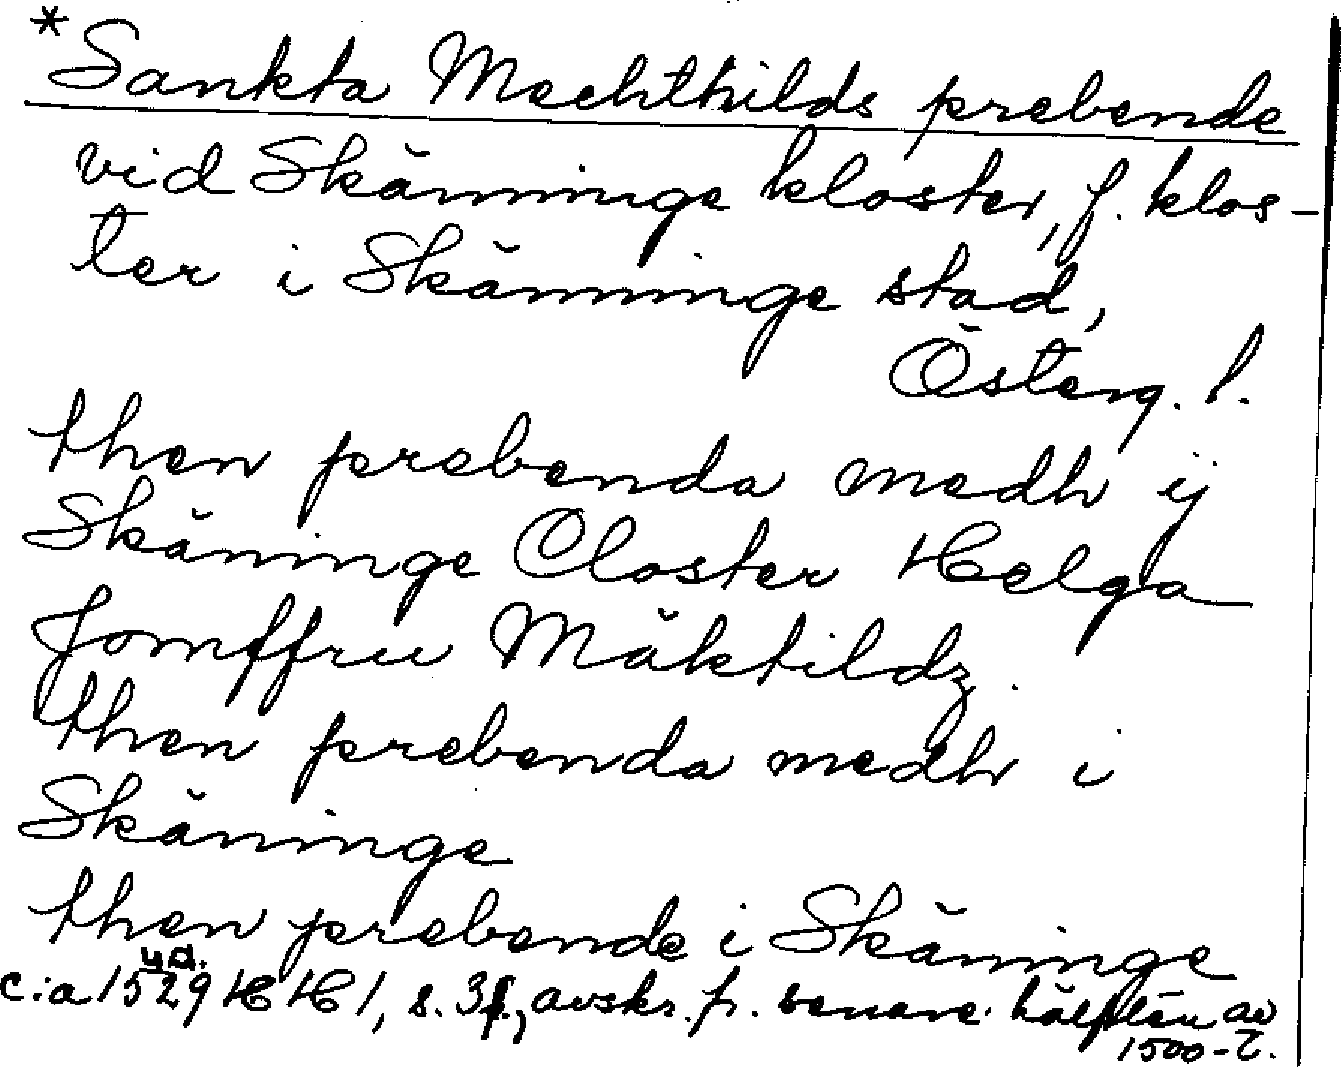 *Sankta Mechthilds prebende
vid Skänninge kloster, f. klos-
ter i Skänninge stad,
Österg. l.
then prebenda medh ij
Skäninge Closter Helga
Jomffru Mäktildz.
then prebenda medh i
Skäninge
then prebende i Skäninge
u.å.
c:a 1529 HH 1, s. 3f., avskr. fr. senare hälften av
1500-t.